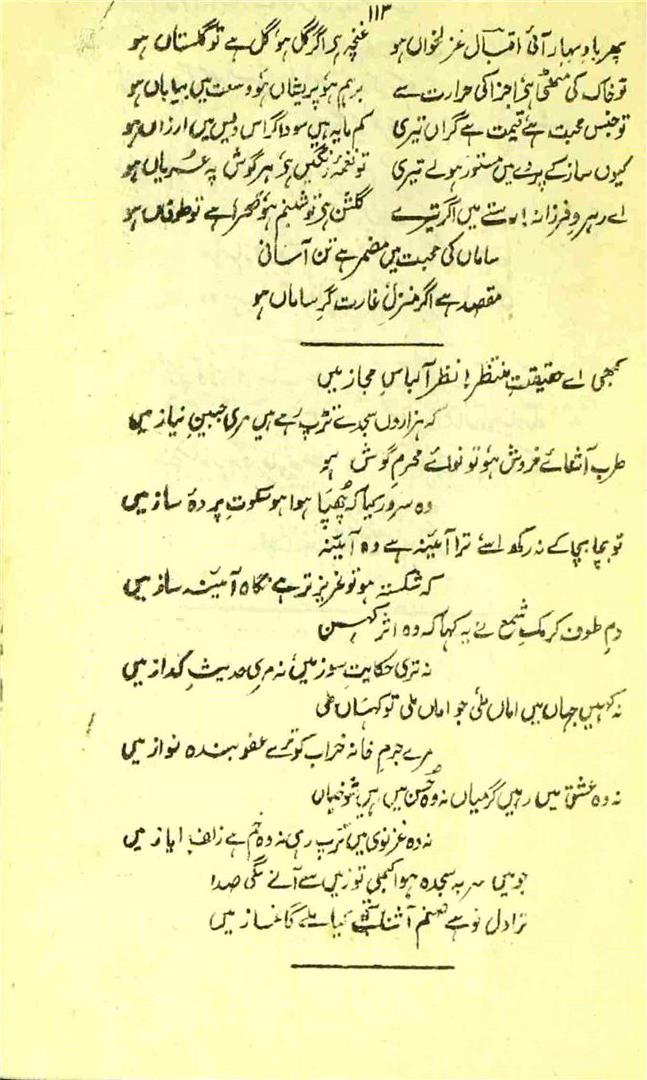 ۱۱۳
پھر باد بہار آئی اقبال غزلخواں ہو غنچہ ہے اگر گل ہو گل ہے تو گلستاں ہو
تو خاک کی مٹھی ہے اجزا کی حرارت سے برہم ہو پریشاں ہو وسعت میں بیاباں ہو
تو جنس محبت ہے قیمت ہے گراں تیری کم مایہ ہیں سوداگر اس دیس میں ارزاں ہو
کیوں ساز کے پردے میں مستور ہو لے تیری تو نغمۂ رنگیں ہے ہر گوش پہ عریاں ہو
اے رہرو فرزانہ! رستے میں اگر تیرے گلشن ہے تو شبنم ہو صحرا ہے تو طوفاں ہو
ساماں کی محبت میں مضمر ہے تن آسانی
مقصد ہے اگر منزل غارت گر ساماں ہو
کبھی اے حقیقتِ منتظر! نظر آ لباسِ مجاز میں
کہ ہزاروں سجدے تڑپ رہے ہیں مری جبینِ نیاز میں
طرب آشنائے خروش ہو تو نوائے محرمِ گوش ہو
وہ سرور کیا کہ چھپا ہوا ہو سکوتِ پردۂ ساز میں
تو بچا بچا کے نہ رکھ اسے ترا آئینہ ہے وہ آئینہ
کہ شکستہ ہو تو عزیز تر ہے نگاہ آئینہ ساز میں
دمِ طوف کرمکِ شمع نے یہ کہا کہ وہ اثر کہن
نہ تری حکایتِ سوز میں نہ مری حدیثِ گداز میں
نہ کہیں جہاں میں اماں ملی جو اماں ملی تو کہاں ملی
مرے جرمِ خانہ خراب کو ترے عفو بندہ نواز میں
نہ وہ عشق میں رہیں گرمیاں نہ وہ حسن میں رہیں شوخیاں
نہ وہ غزنوی میں تڑپ رہی نہ وہ خم ہے زلف ایاز میں
جو میں سر بہ سجدہ ہوا کبھی تو زمیں سے آنے لگی صدا
ترا دل تو ہے صنم آشنا تجھے کیا ملے گا نماز میں